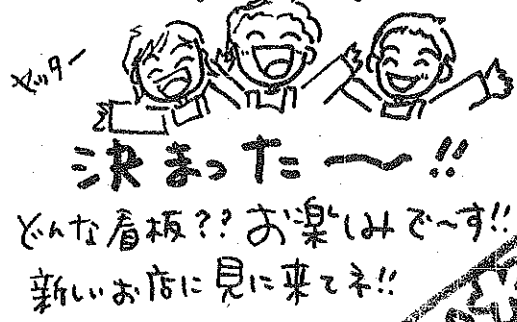 ヤッター
決まった〜!!
どんな看板??お楽しみで〜す!!
新しいお店に見に来てネ!!